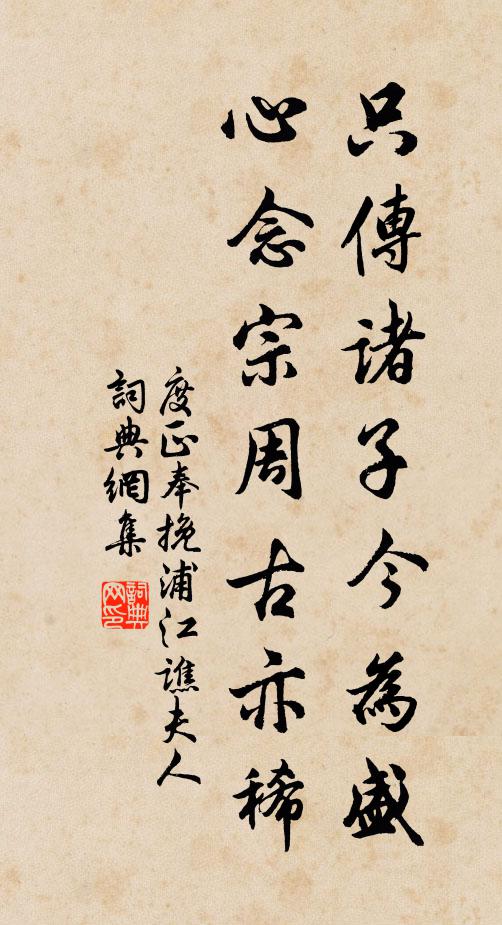 只傳諸子今為盛
心念宗周古亦稀
度正奉挽浦江譙夫人
詞典網集
詞典网印